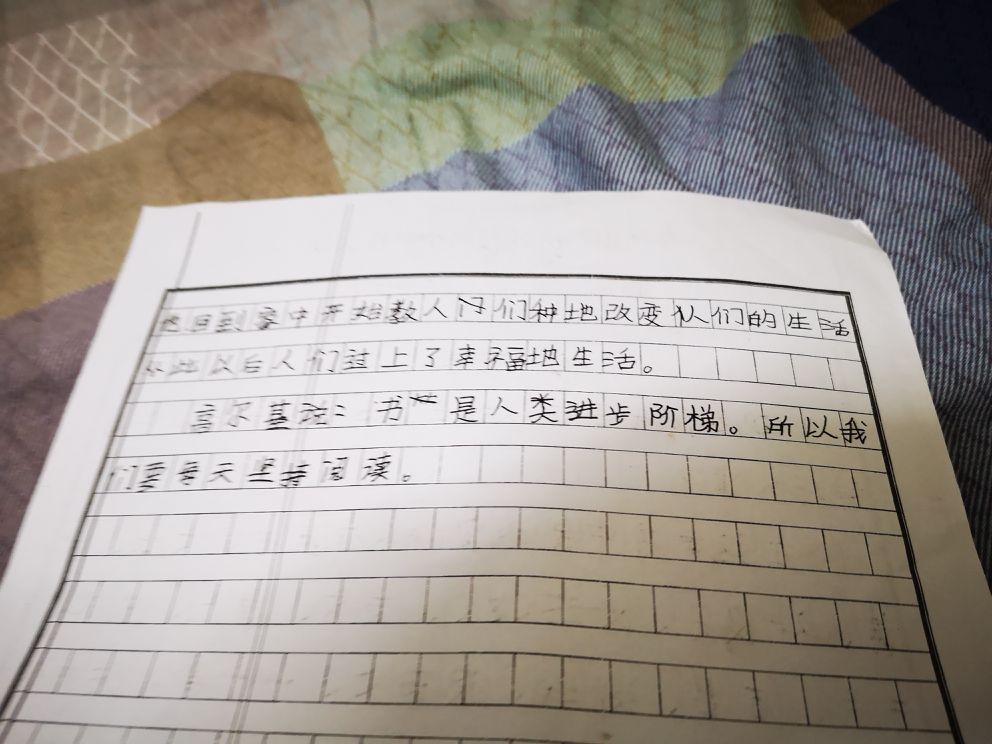 他回到家中开始教人们种地改变人们的生活
从此以后人们过上了幸福地生活。
高尔基说:书是人类进步阶梯。所以我
们要每天坚持阅读。